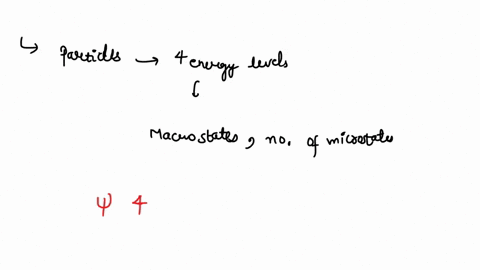 ↳ Particles → 4 energy levels
↓
Macrostates, no. of microstates
ψ 4